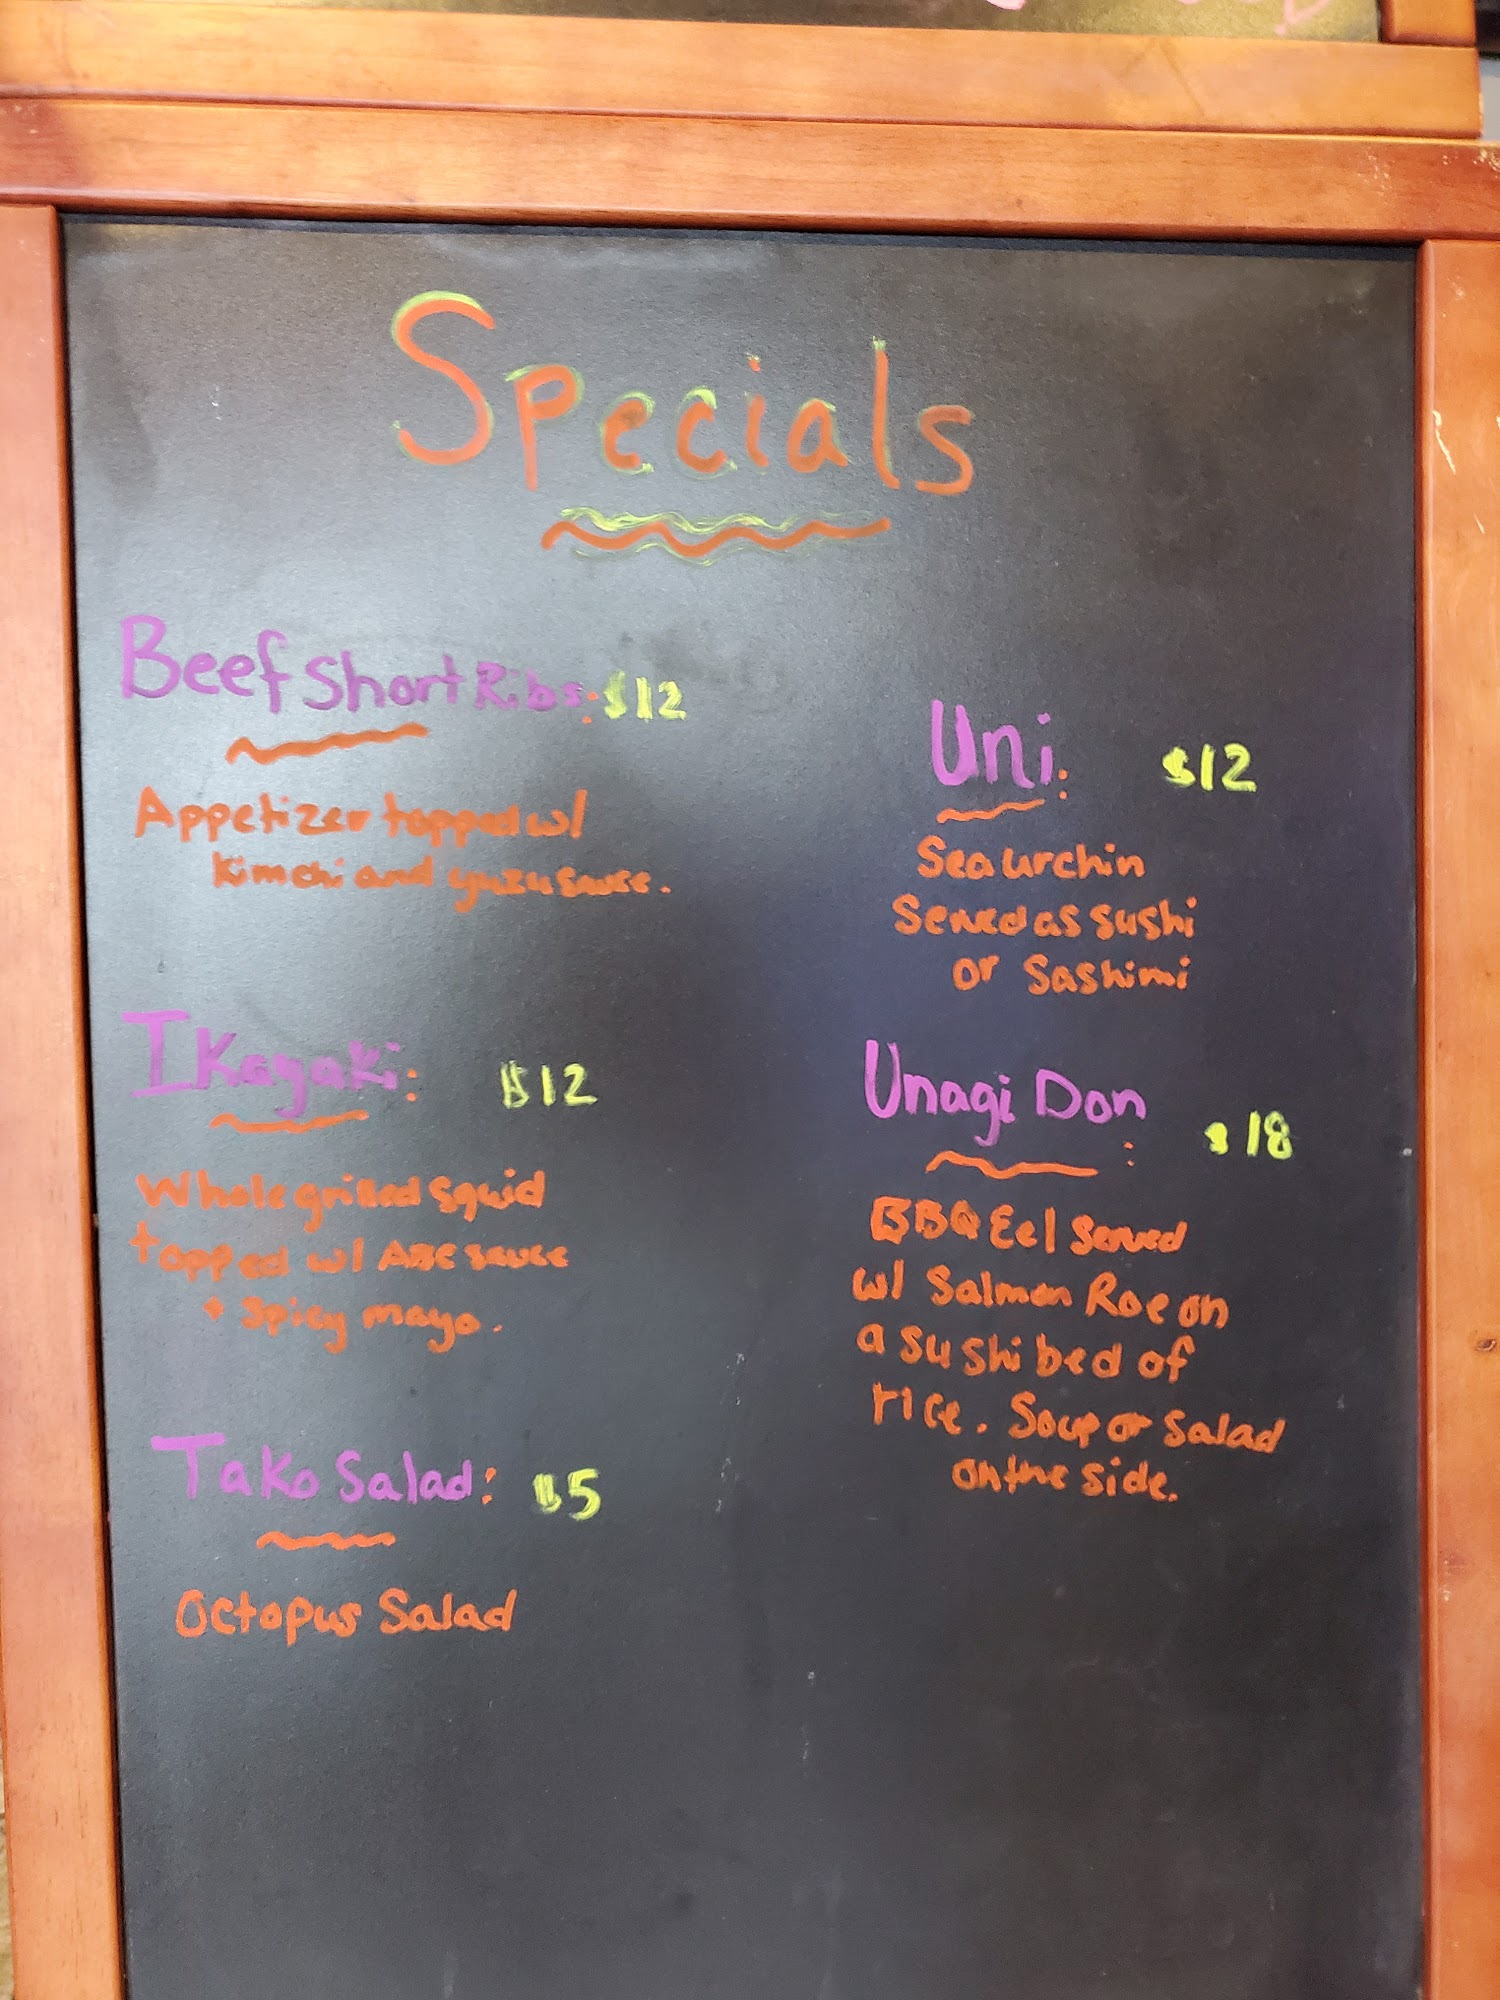 Specials
Beef Short Ribs: $12
Appetizer topped w/
Kimchi and yuzu sauce.
Ikayaki: $12
Whole grilled squid
topped w/ ABC sauce
+ spicy mayo.
Tako Salad: $5
Octopus Salad
Uni: $12
Sea urchin
Served as sushi
or Sashimi
Unagi Don: $18
BBQ Eel Served
w/ Salmon Roe on
a sushi bed of
rice. Soup or salad
on the side.